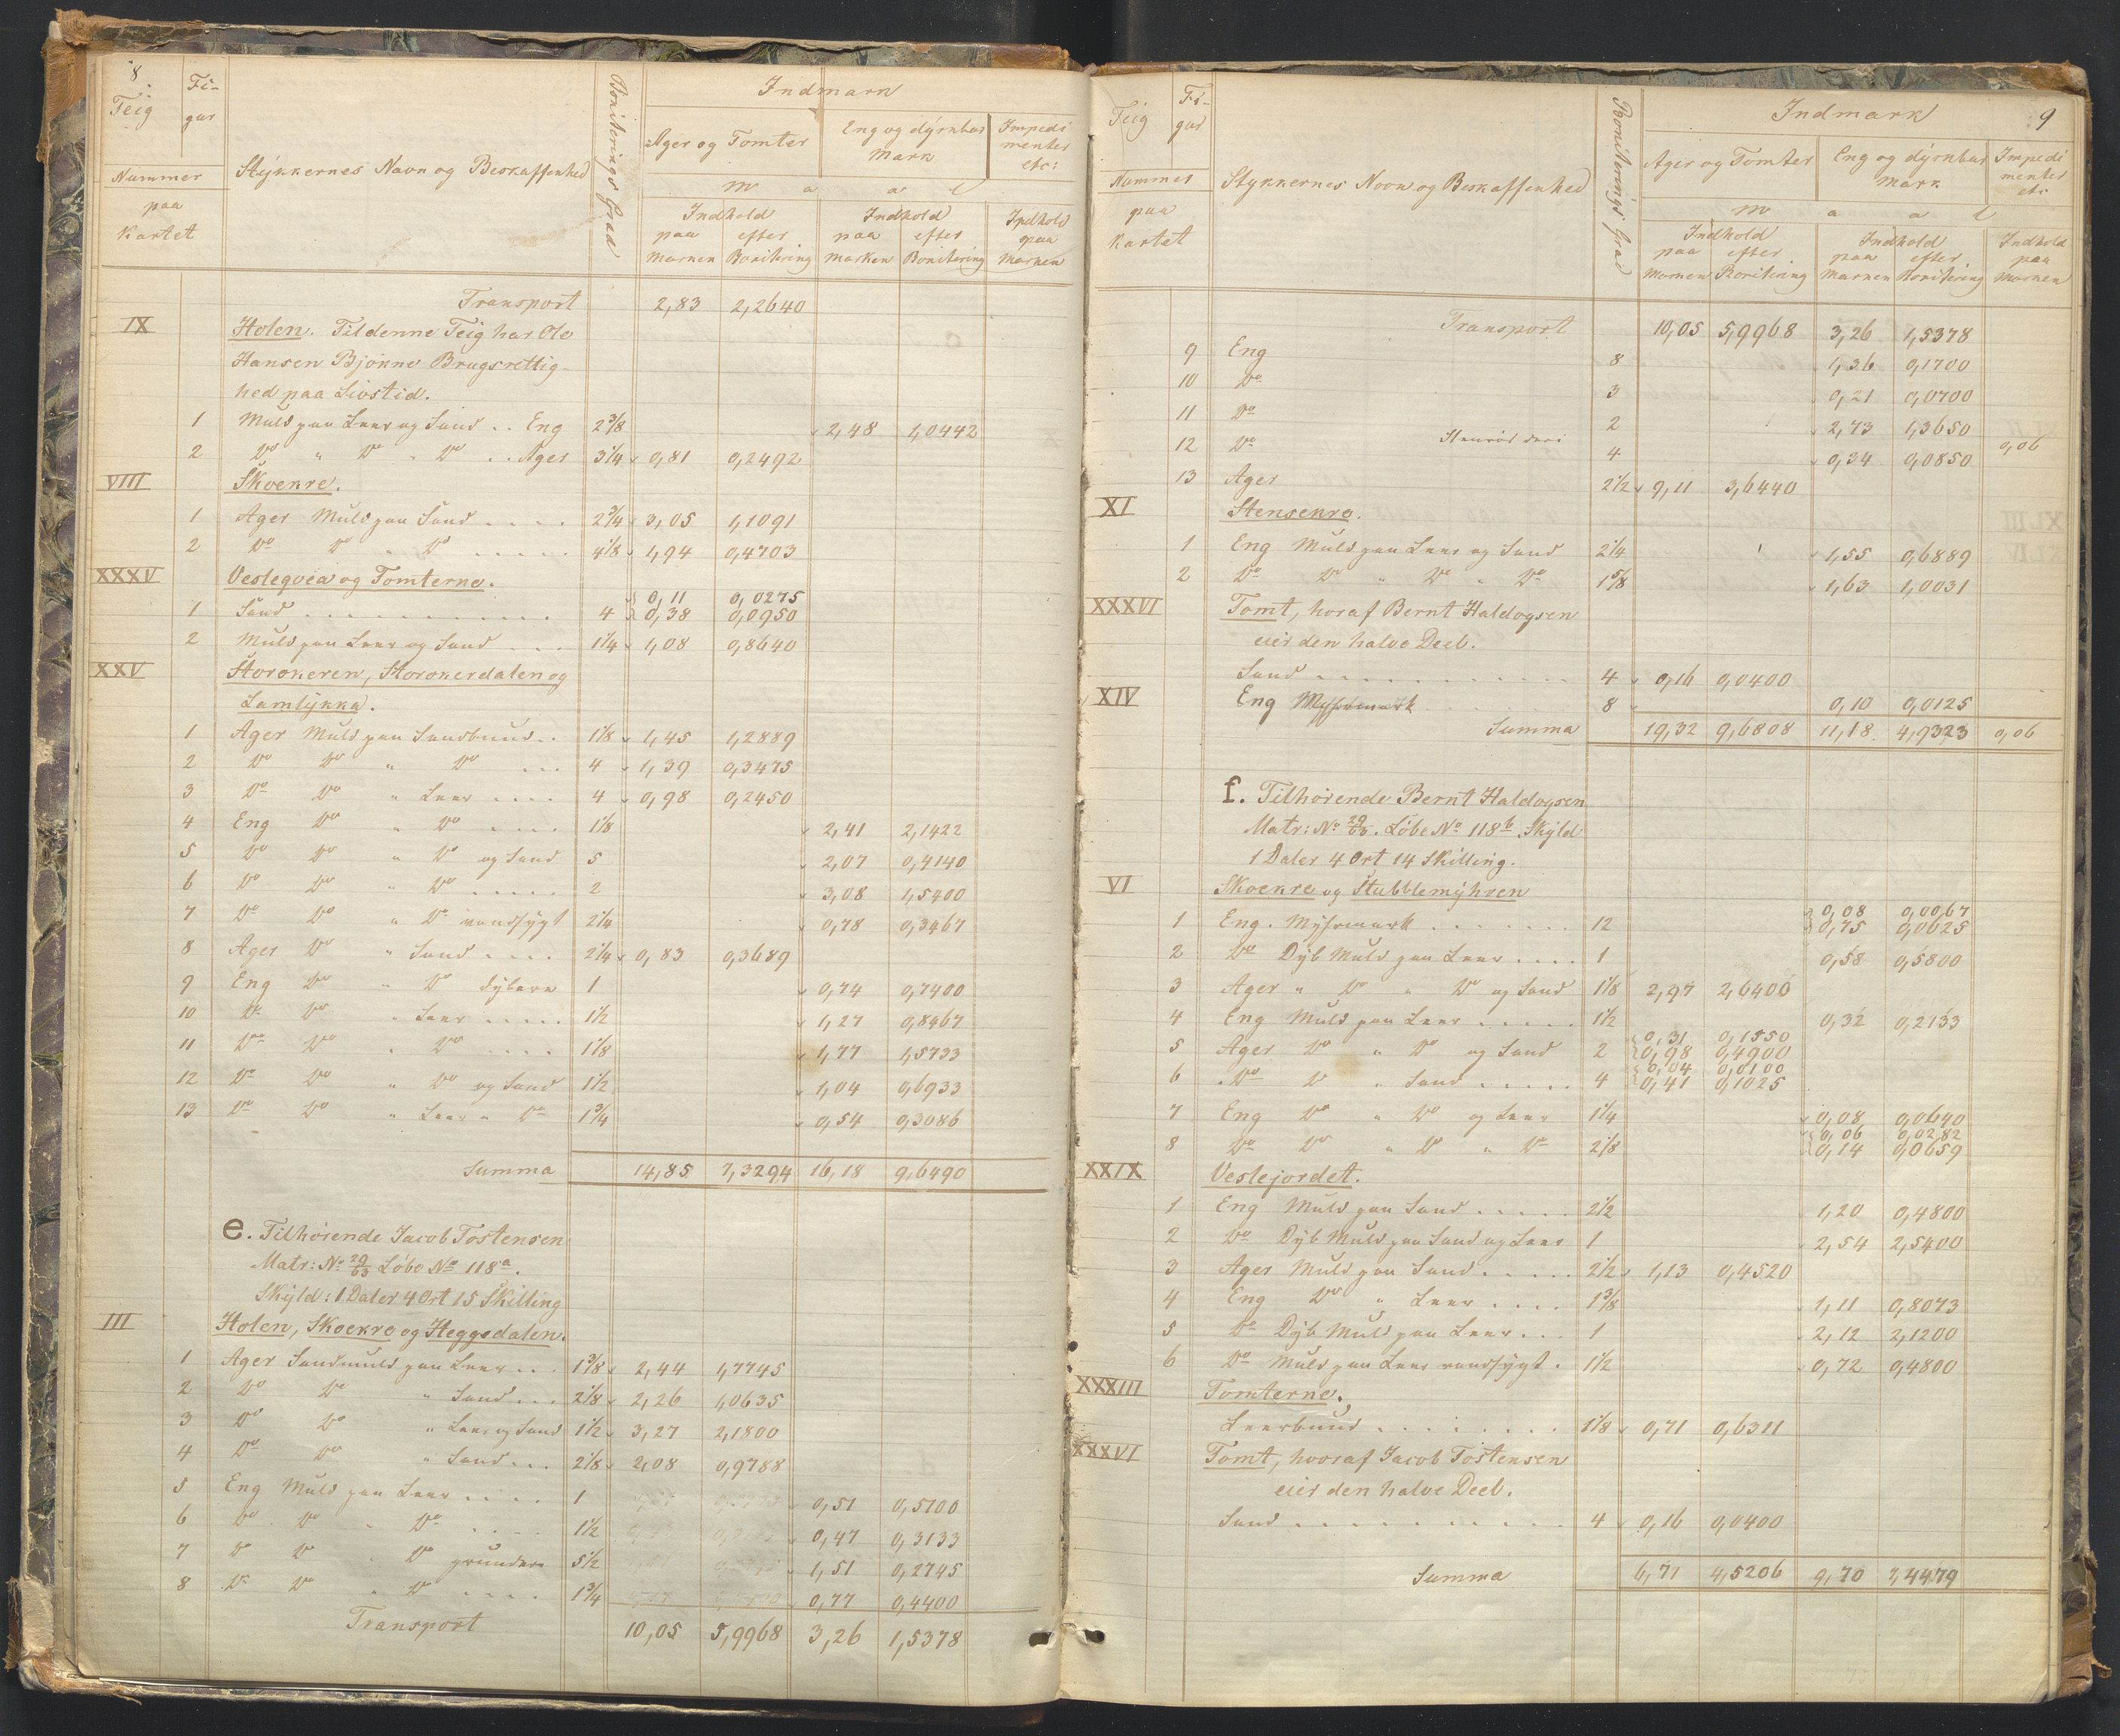 8
Teig
Fi-
gur
Nummer
paa
Kartet
Stÿkkernes Navn og Beskaffenhed
Boniterings Grad
Indmark
Ager og Tomter
Eng og dÿrkbar
Mark
Impedi
menter
etc:
M a a l
Indhold
paa efter
Marken Bonitering
Indhold
paa efter
Marken Bonitering
Indhold
paa
Marken
Transport 2,83 2,2640
IX Holen. Til denne Teig har Ole
Hansen Bjørke Brugsrettig-
hed paa Livstid.
1 Muld paa Leer og Sand .. Eng 2 3/8 2,48 1,0442
2 Do " Do " Do .. Ager 3 1/4 0,81 0,2492
VIII Skoekre.
1 Ager Muld paa Sand .... 2 3/4 3,05 1,1091
2 Do Do " Do ..... 4 1/8 1,94 0,4703
XXXV Veslegvea og Tomterne.
0,11 0,0275
1 Sand ........... 4 0,38 0,0950
2 Muld paa Leer og Sand ... 1 1/4 1,08 0,8640
XXV Storakeren, Storakerdalen og
Lamlÿkka.
1 Ager Muld paa Sandbund.. 1 1/8 1,45 1,2889
2 Do Do " Do ... 4 1,39 0,3475
3 Do Do " Leer .... 4 0,98 0,2450
4 Eng Do " Do .... 1 1/8 2,41 2,1422
5 Do Do " Do og Sand 5 2,07 0,4140
6 Do Do " Do ..... 2 3,08 1,5400
7 Do Do " Do vandsÿgt 2 1/4 0,78 0,3467
8 Ager Do " Sand .... 2 1/4 0,83 0,3689
9 Eng Do " Do dÿbere 1 0,74 0,7400
10 Do Do " Leer ..... 1 1/2 1,27 0,8467
11 Do Do " Do .... 1 1/8 1,77 1,5733
12 Do Do " Do og Sand 1 1/2 1,04 0,6933
13 Do Do " Leer " Do 1 3/4 0,54 0,3086
Summa 14,85 7,3294 16,18 9,6490
e. Tilhørende Jacob Tostensen
Matr: No 29/63 Løbe No 118a.
Skÿld: 1 Daler 4 Ort 15 Skilling
III Holen, Skoekre og Heggsdalen.
1 Ager Sandmuld paa Leer ... 1 3/8 2,44 1,7745
2 Do Do " Sand ... 2 1/8 2,26 1,0635
3 Do Do " Leer og Sand 1 1/2 3,27 2,1800
4 Do Do " Sand ... 2 1/8 2,08 0,9788
5 Eng Muld paa Leer .... 1 0,51 0,5100
6 Do Do " Do .... 1 1/2 0,47 0,3133
7 Do Do " Do grundere 5 1/2 1,51 0,2745
8 Do Do " Do .... 1 3/4 0,77 0,4400
Transport 10,05 5,9968 3,26 1,5378
9
Teig
Fi-
gur
Nummer
paa
Kartet
Stÿkkernes Navn og Beskaffenhed
Boniterings Grad
Indmark
Ager og Tomter
Eng og dÿrkbar
Mark
Impedi
menter
etc
M a a l
Indhold
paa efter
Marken Bonitering
Indhold
paa efter
Marken Bonitering
Indhold
paa
Marken
Transport 10,05 5,9968 3,26 1,5378
9 Eng 8 1,36 0,1700
10 Do 3 0,21 0,0700
11 Do 2 2,73 1,3650
12 Do Stenrøs deri 4 0,34 0,0850 0,06
13 Ager 2 1/2 9,11 3,6440
XI Stensekre.
1 Eng Muld paa Leer og Sand 2 1/4 1,55 0,6889
2 Do Do " Do " Do 1 5/8 1,63 1,0031
XXXVI Tomt, hvoraf Bernt Haldogsen
eier den halve Deel.
Sand ............ 4 0,16 0,0400
XIV Eng Mÿrmark ...... 8 0,10 0,0125
Summa 19,32 9,6808 11,18 4,9323 0,06
f. Tilhørende Bernt Haldogsen
Matr: No 29/63. Løbe No 118b. Skÿld
1 Daler 4 Ort 14 Skilling.
VI Skoekre og Stubblemÿhren
0,08 0,0067
1 Eng. Mÿrmark ....... 12 0,75 0,0625
2 Do Dÿb Muld paa Leer .... 1 0,58 0,5800
3 Ager " Do " Do og Sand 1 1/8 2,97 2,6400
4 Eng Muld paa Leer ..... 1 1/2 0,32 0,2133
0,31 0,1550
5 Ager Do " Do og Sand 2 0,98 0,4900
0,04 0,0100
6 Do Do " Sand ..... 4 0,41 0,1025
7 Eng Do " Do og Leer 1 1/4 0,08 0,0640
0,06 0,0282
8 Do Do " Do " Do 2 1/8 0,14 0,0659
XXIX Veslejordet.
1 Eng Muld paa Sand ..... 2 1/2 1,20 0,4800
2 Do Dÿb Muld paa Sand og Leer 1 2,54 2,5400
3 Ager Muld paa Sand ..... 2 1/2 1,13 0,4520
4 Eng Do " Leer .... 1 3/8 1,11 0,8073
5 Do Dÿb Muld paa Leer ... 1 2,12 2,1200
6 Do Muld paa Leer vandsÿgt . 1 1/2 0,72 0,4800
XXXIII Tomterne.
Leerbund ......... 1 1/8 0,71 0,6311
XXXVI Tomt, hvoraf Jacob Tostensen
eier den halve Deel.
Sand .......... 4 0,16 0,0400
Summa 6,71 4,5206 9,70 7,4479